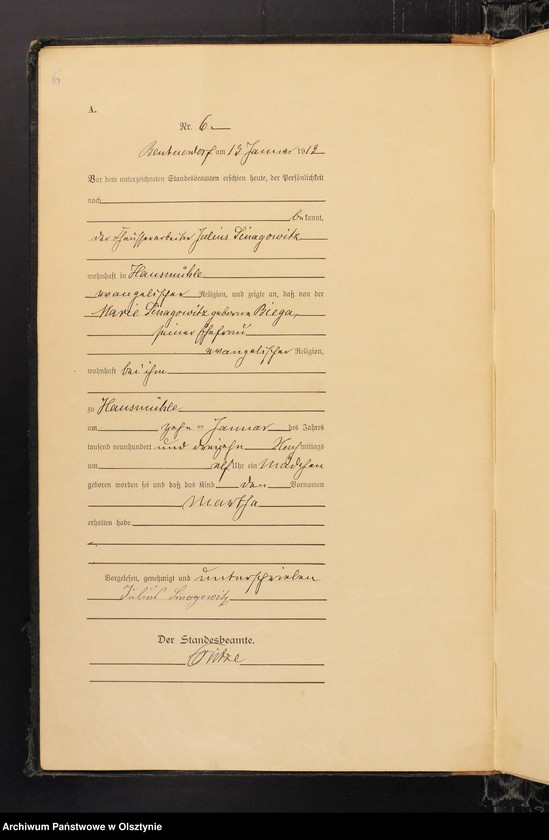 6
A.
Nr. 6.
am 13 Januar 1912
Vor dem unterzeichneten Standesbeamten erschien heute, der Persönlichkeit
nach
bekannt,
der Julius Sinagowitz
wohnhaft in Hausmühle
evangelischer Religion, und zeigte an, daß von der
Marie Sinagowitz geborene Biega,
seiner Ehefrau
evangelischer Religion,
wohnhaft bei ihm
zu Hausmühle
am zehn ten Januar des Jahres
tausend neunhundert und dreizehn Nachmittags
um elf Uhr ein Mädchen
geboren worden sei und daß das Kind den Vornamen
Martha
erhalten habe
Vorgelesen, genehmigt und unterschrieben
Julius Sinagowitz
Der Standesbeamte.
Archiwum Państwowe w Olsztynie